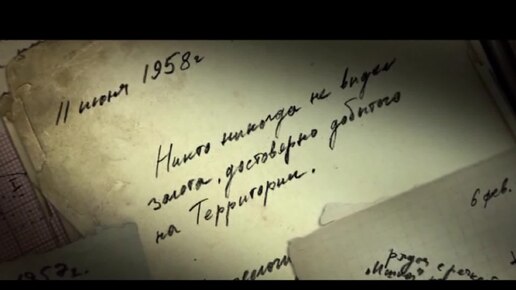 11 июня 1958г
Никто никогда не видел
золота, достоверно добытого
на Территории.
6 фев.
1957г.
рядом с речкой